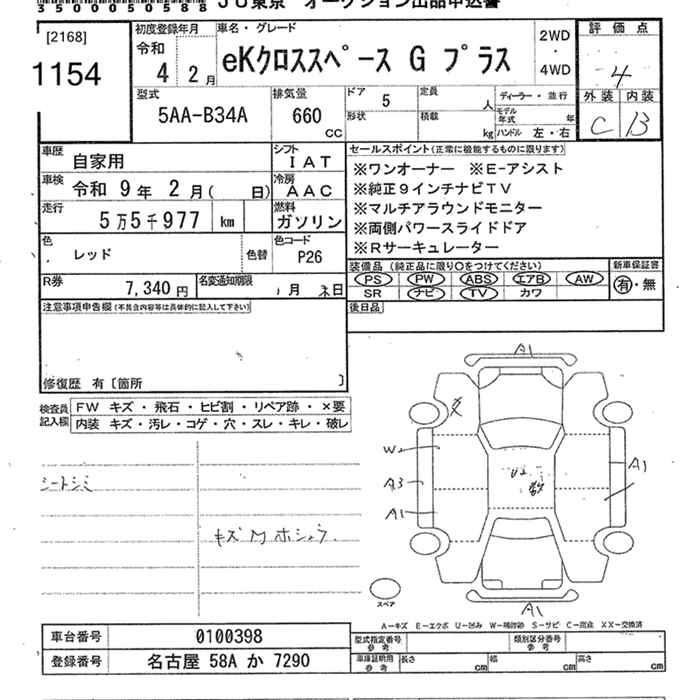 35000500588 JU東京 オークション出品申込書
[2168]
1154
初度登録年月
令和
4 2月
車名・グレード
eKクロススペース G プラス
2WD
・
4WD
評価点
4
外装 内装
C B
型式
5AA-B34A
排気量
660
CC
ドア 5
形状
定員 人
積載 kg
ディーラー・並行
モデル年式 年
ハンドル 左・右
車歴
自家用
シフト
IAT
車検
令和 9年 2月( 日)
冷房
AAC
走行
5万5千977 km
燃料
ガソリン
色
レッド
色替
色コード
P26
R券
7,340円
名変通知期限
月 末日
セールスポイント(正常に機能するものに限ります)
※ワンオーナー ※E-アシスト
※純正9インチナビTV
※マルチアラウンドモニター
※両側パワースライドドア
※Rサーキュレーター
装備品 (純正品に限り○をつけてください)
PS PW ABS エアB AW
SR ナビ TV カワ
新車保証書
有・無
後日品
注意事項申告欄(不具合内容等は具体的に記入して下さい)
修復歴 有[箇所 ]
検査員記入欄
FW キズ・飛石・ヒビ割・リペア跡・×要
内装 キズ・汚レ・コゲ・穴・スレ・キレ・破レ
シートシミ
キズMホショウ.
A1
W2
A3
A1
U2
A1
A1
スペア
A-キズ E-エクボ U-凹み W-補修跡 S-サビ C-腐食 XX-交換済
車台番号
0100398
登録番号
名古屋 58A か 7290
型式指定番号
参考
類別区分番号
参考
車庫証明用
参考
長さ cm
幅 cm
高さ cm